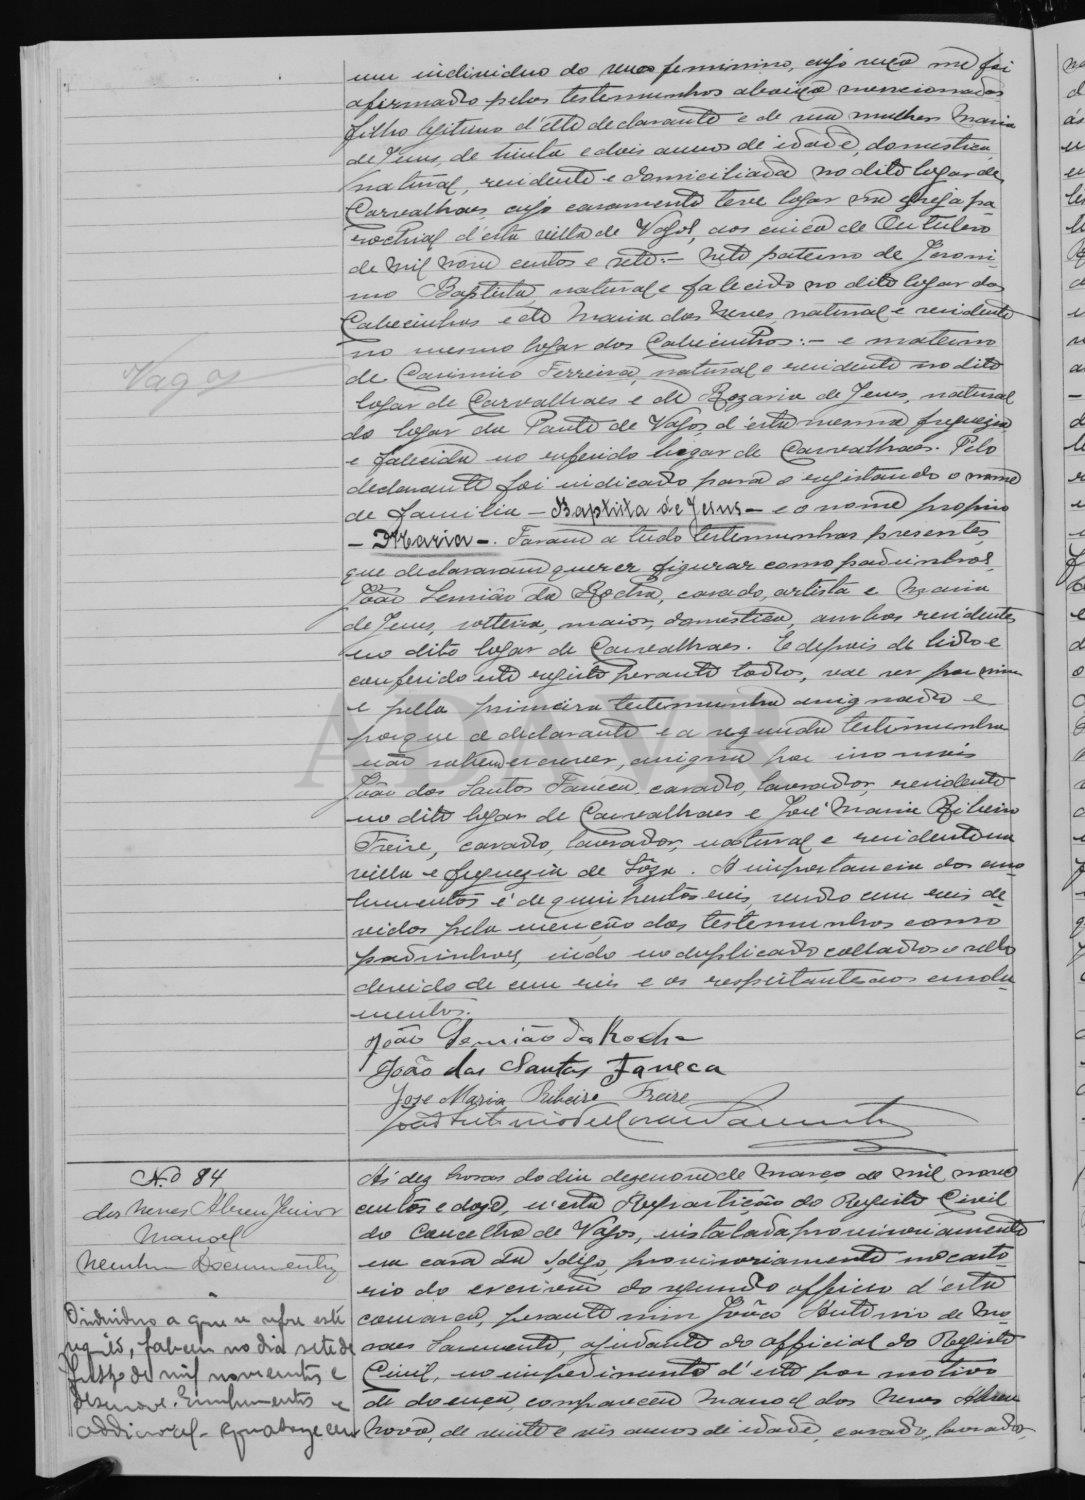 um individuo do sexo feminino, cujo sexo me foi
afirmado pelas testemunhas abaixo mencionadas
filho legitimo d'elle declarante e de sua mulher Maria
de Jesus, de trinta e dois annos de idade, domestica,
natural, residente e domiciliada no dito logar de
Carvalhaes, cujo casamento teve logar na egreja pa-
rochial d'esta villa de Vagos, aos cinco de Outubro
de mil nove centos e sete:- Neto paterno de Jeroni-
mo Baptista, natural e falecido no dito logar dos
Cabecinhos e de Maria das Neves, natural e residente
no mesmo logar dos Cabecinhos:- e materno
Vagos
de Casimiro Ferreira, natural e residente no dito
logar de Carvalhaes e de Rozaria de Jesus, natural
do logar da Ponte de Vagos, d'esta mesma freguezia
e falecida no referido logar de Carvalhaes. Pelo
declarante foi indicado para o registando o nome
de familia - Baptista de Jesus - e o nome proprio
- Maria -. Foram a tudo testemunhas presentes,
que declararam querer figurar como padrinhos,
João Semião da Rocha, casado, artista e Maria
de Jesus, solteira, maior, domestica, ambos residentes
no dito logar de Carvalhaes. E depois de lido e
conferido este registo perante todos, vae ser por mim
e pella primeira testemunha assignado e
porque o declarante e a segunda testemunha
não sabem escrever, assigna por isso mais
João dos Santos Faneca casado, lavrador, residente
no dito logar de Carvalhaes e José Maria Ribeiro
Freire, casado, lavrador, natural e residente na
villa e freguezia de Sôza. A importancia dos emo-
lumentos é de quinhentos reis, sendo cem reis de-
vidos pela menção das testemunhas como
padrinhos, indo no duplicado collados o sello
devido de cem reis e os respeitantes aos emolu-
mentos.
João Semião da Rocha
João dos Santos Faneca
Jose Maria Ribeiro Freire
João Antonio de Moraes Sarmento
ADAVR
N.o 84
das Neves Abreu Junior
Manoel
Nenhum Documento
O individuo a que se refere este
registo, faleceu no dia sete de
de mil novecentos e
desenove. Emolumentos e
addicional - quatorze cen
Ás dez horas do dia dezenove de Março de mil nove
centos e doze, n'esta Repartição do Registo Civil
do Concelho de Vagos, installada provisoriamente
em casa da provisoriamente no carto-
rio do escrivão do segundo officio d'esta
comarca, perante mim João Antonio de Mo-
raes Sarmento, ajudante do official do Registo
Civil, no impedimento d'este por motivo
de doença, compareceu Manoel das Neves Abreu
Novo, de vinte e seis annos de idade, casado, lavrador,